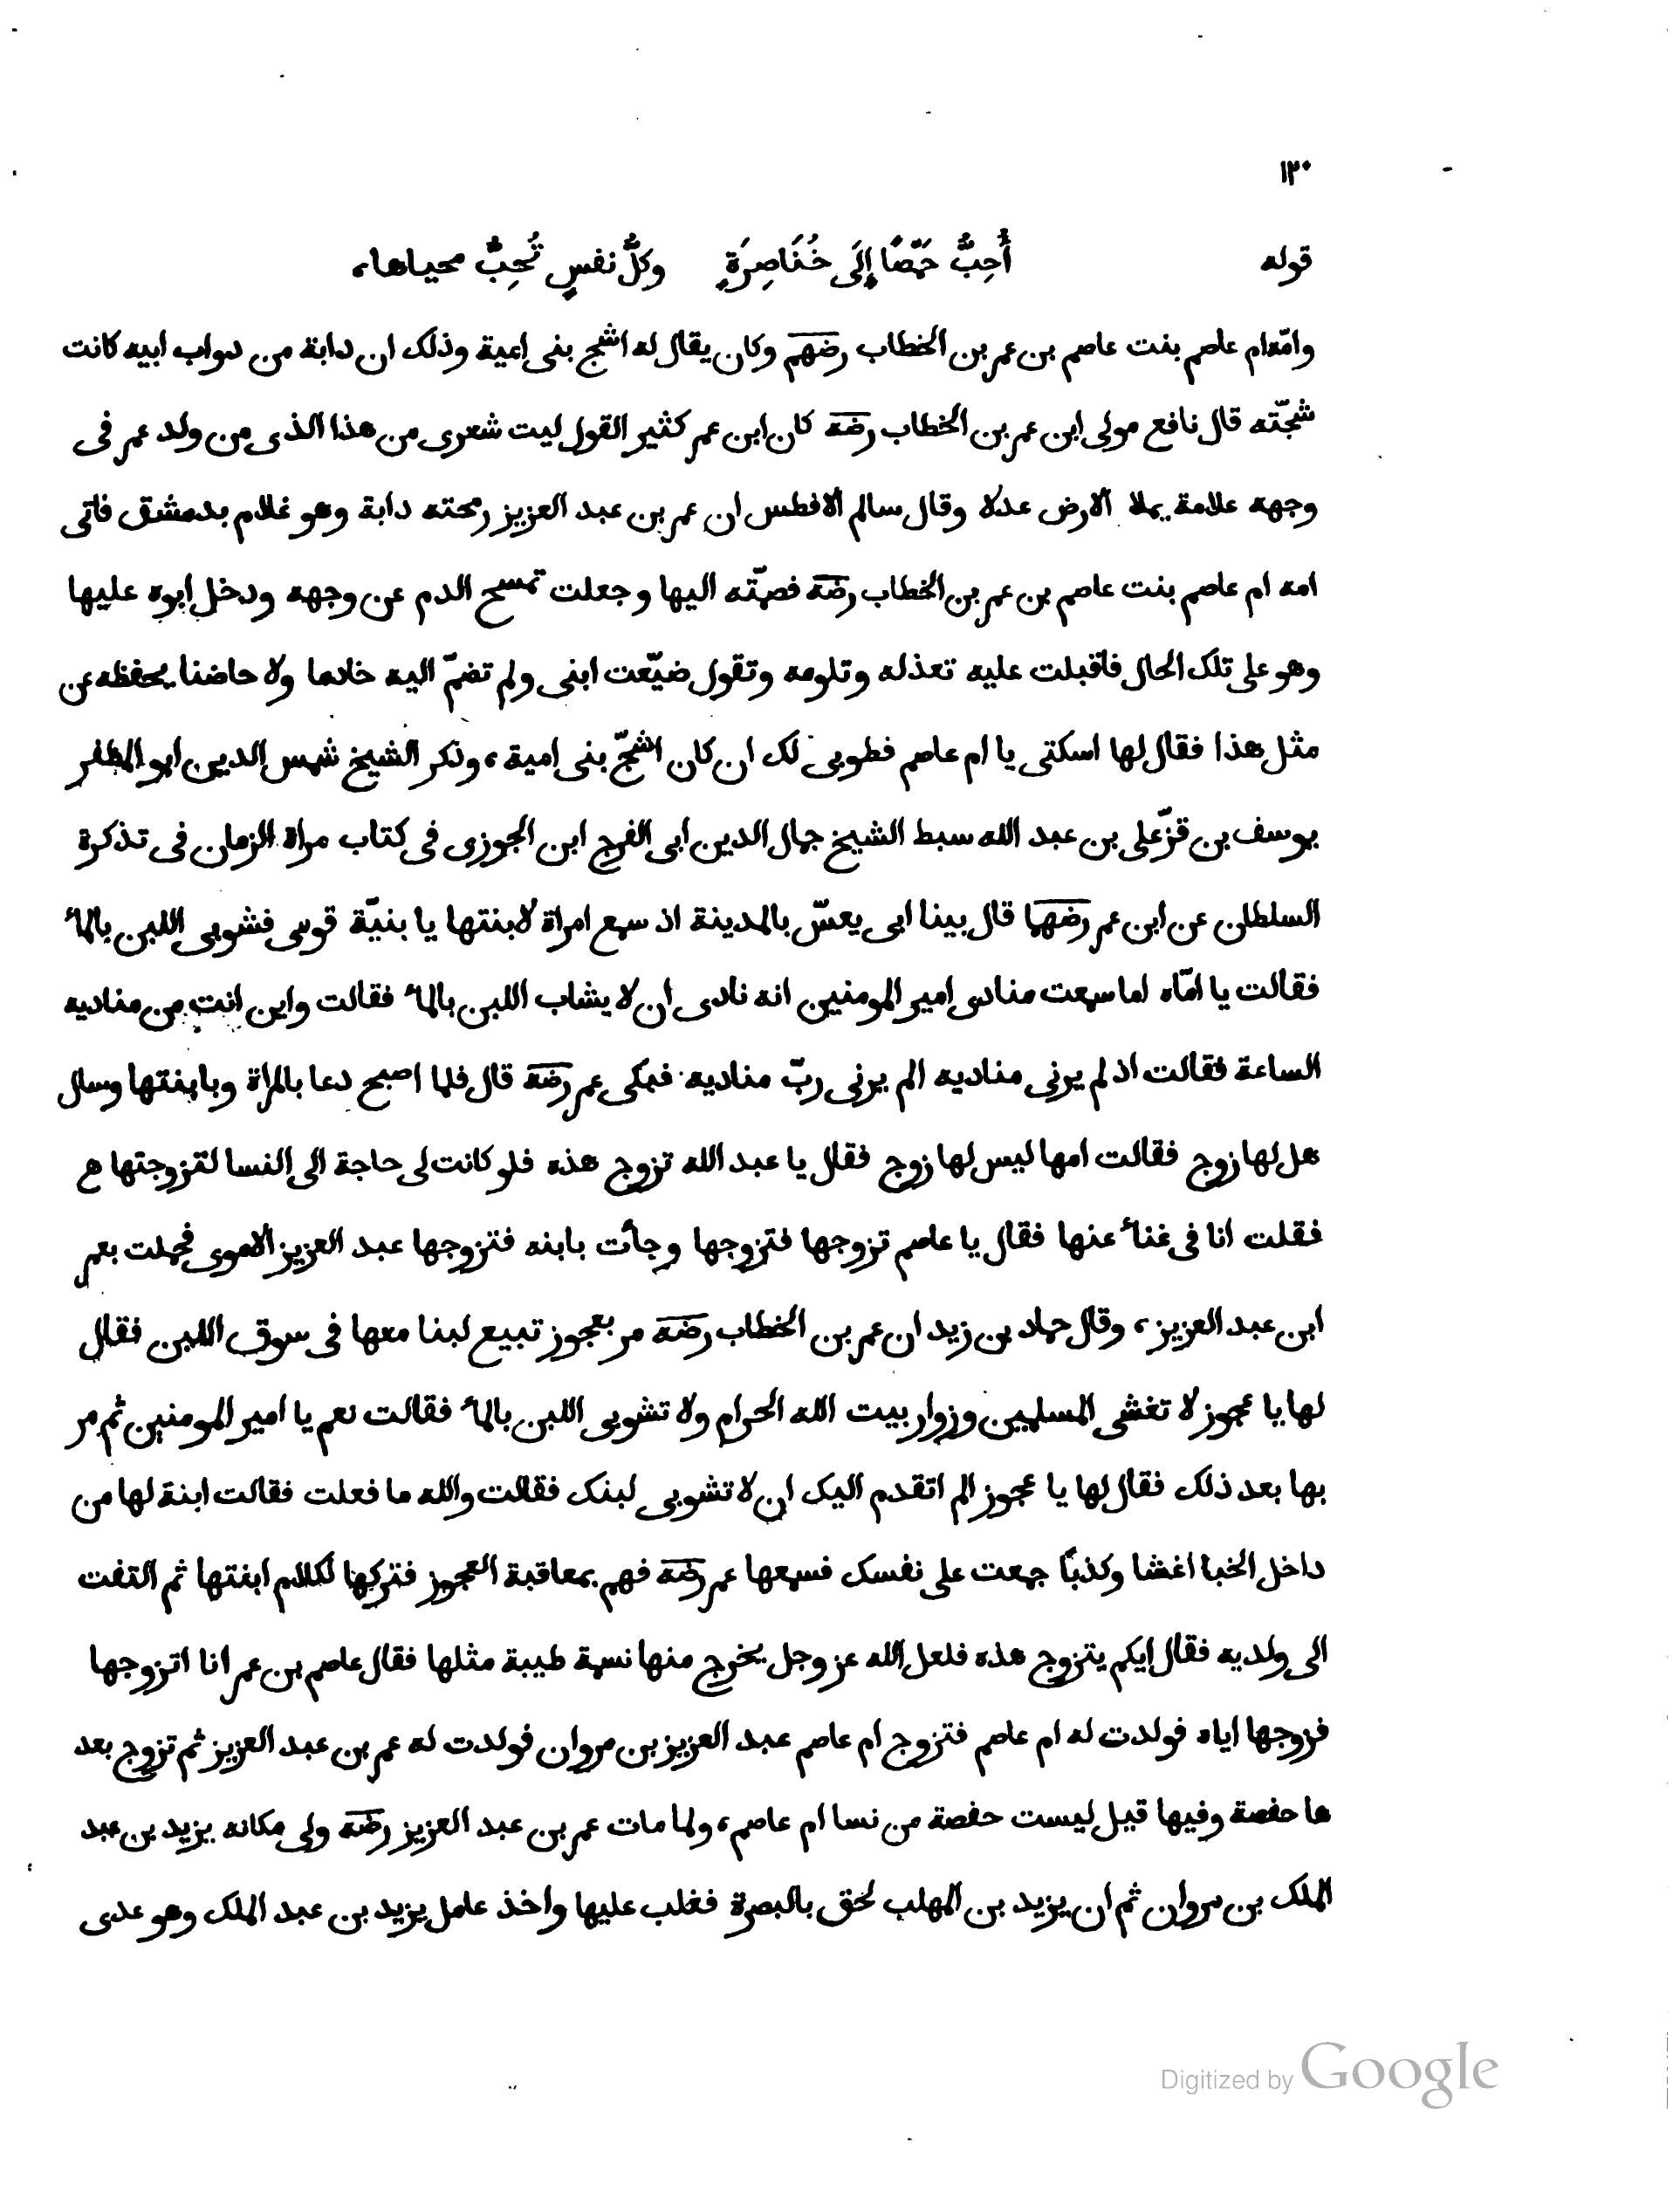 ١٣٠
قوله أُحِبُّ حَمَّصًا إِلَى خُنَاصِرَةٍ وكلُّ نفسٍ تُحِبُّ محياها،
وامّه ام عاصم بنت عاصم بن عمر بن الخطاب رضهم وكان يقال له اشج بنى امية وذلك ان دابة من دواب ابيه كانت
شجّته قال نافع مولى ابن عمر بن الخطاب رضه كان ابن عمر كثير القول ليت شعرى من هذا الذى من ولد عمر فى
وجهه علامة يملا الارض عدلا وقال سالم الافطس ان عمر بن عبد العزيز رمحته دابة وهو غلام بدمشق فاتى
امه ام عاصم بنت عاصم بن عمر بن الخطاب رضه فضمّته اليها وجعلت تمسح الدم عن وجهه ودخل ابوه عليها
وهو على تلك الحال فاقبلت عليه تعذله وتلومه وتقول ضيّعت ابنى ولم تضمّ اليه خادما ولا حاضنا يحفظه عن
مثل هذا فقال لها اسكتى يا ام عاصم فطوبى لك ان كان اشجّ بنى امية، وذكر الشيخ شمس الدين ابو المظفر
يوسف بن قزعلى بن عبد الله سبط الشيخ جمال الدين ابى الفرج ابن الجوزى فى كتاب مراة الزمان فى تذكرة
السلطان عن ابن عمر رضهما قال بينا ابى يعسّ بالمدينة اذ سمع امراة لابنتها يا بنيّة قومى فشوبى اللبن بالماء
فقالت يا امّاه اما سمعت منادى امير المومنين انه نادى ان لا يشاب اللبن بالماء فقالت واين انت من مناديه
الساعة فقالت اذ لم يرنى مناديه الم يرنى ربّ مناديه فبكى عمر رضه قال فلما اصبح دعا بالمراة وبابنتها وسال
هل لها زوج فقالت امها ليس لها زوج فقال يا عبد الله تزوج هذه فلو كانت لى حاجة الى النسا لتزوجتها
فقلت انا فى غناء عنها فقال يا عاصم تزوجها فتزوجها وجأت بابنه فتزوجها عبد العزيز الاموى فحملت بعمر
ابن عبد العزيز، وقال حماد بن زيد ان عمر بن الخطاب رضه مر بعجوز تبيع لبنا معها فى سوق اللبن فقال
لها يا عجوز لا تغشى المسلمين وزوار بيت الله الحرام ولا تشوبى اللبن بالماء فقالت نعم يا امير المومنين ثم مر
بها بعد ذلك فقال لها يا عجوز الم اتقدم اليك ان لا تشوبى لبنك فقالت والله ما فعلت فقالت ابنة لها من
داخل الخبا اغشا وكذبًا جمعت على نفسك فسمعها عمر رضه فهم بمعاقبة العجوز فتركها لكلام ابنتها ثم التفت
الى ولديه فقال ايكم يتزوج هذه فلعل الله عز وجل يخرج منها نسمة طيبة مثلها فقال عاصم بن عمر انا اتزوجها
فزوجها اياه فولدت له ام عاصم فتزوج ام عاصم عبد العزيز بن مروان فولدت له عمر بن عبد العزيز ثم تزوج بعد
ها حفصة وفيها قيل ليست حفصة من نسا ام عاصم، ولما مات عمر بن عبد العزيز رضه ولى مكانه يزيد بن عبد
الملك بن مروان ثم ان يزيد بن المهلب لحق بالبصرة فغلب عليها واخذ عامل يزيد بن عبد الملك وهو عدى
Digitized by Google